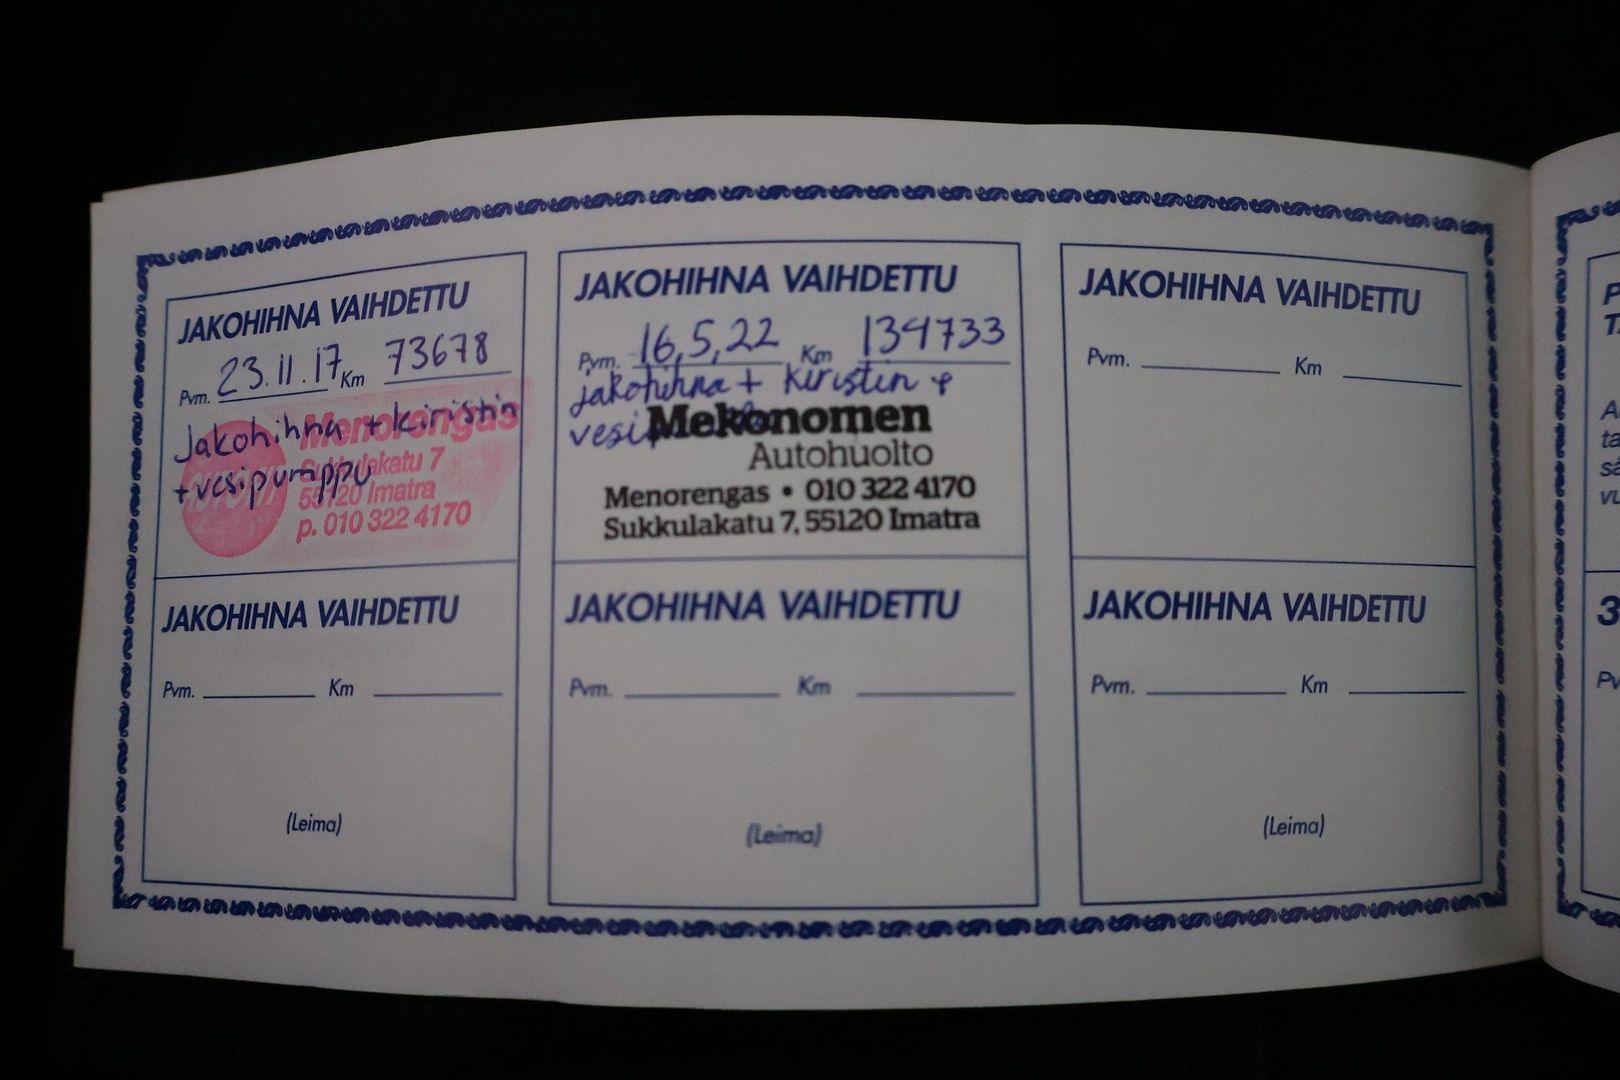 JAKOHIHNA VAIHDETTU
Pvm. 23.11.17 Km 73678
Jakohihna + kiristin
+ vesipumppu
Menorengas
Sukkulakatu 7
55120 Imatra
p. 010 322 4170
JAKOHIHNA VAIHDETTU
Pvm. 16,5,22 Km 134733
jakohihna + kiristin +
Mekonomen
Autohuolto
Menorengas • 010 322 4170
Sukkulakatu 7, 55120 Imatra
JAKOHIHNA VAIHDETTU
Pvm. Km
JAKOHIHNA VAIHDETTU
Pvm. Km
(Leima)
JAKOHIHNA VAIHDETTU
Pvm. Km
(Leima)
JAKOHIHNA VAIHDETTU
Pvm. Km
(Leima)
3